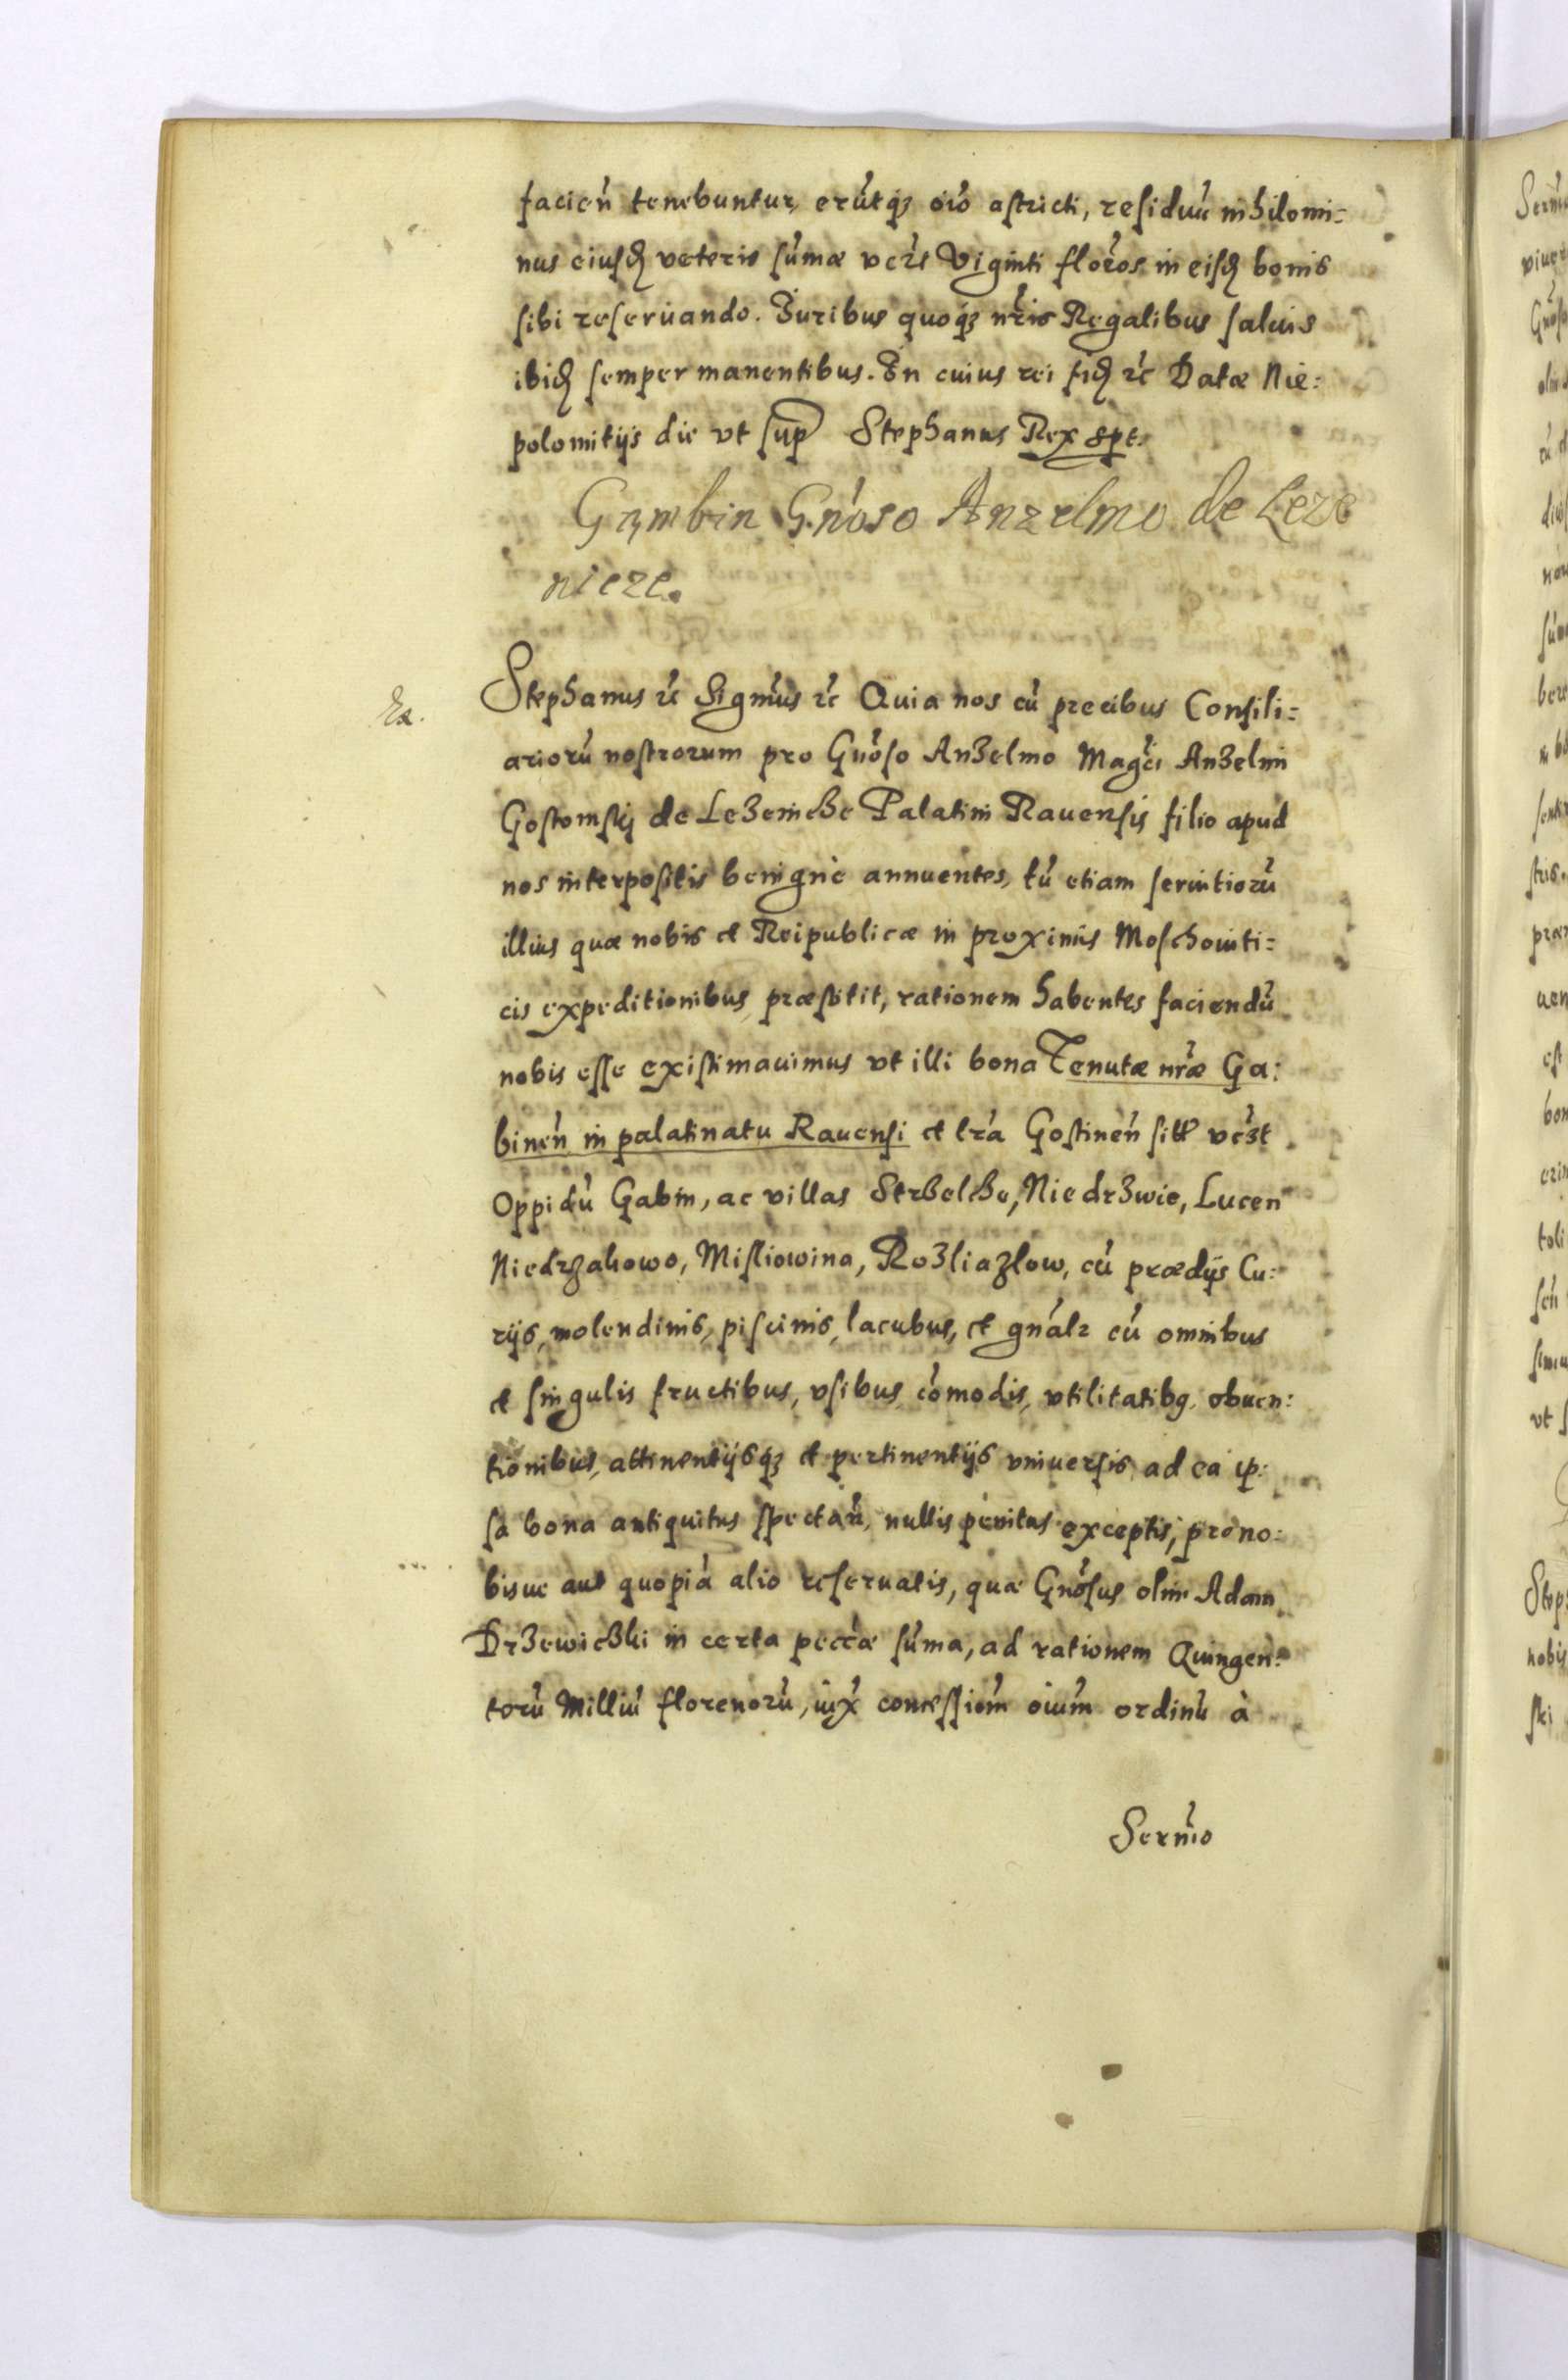 facień tenebuntur, erūtq₃ oīo astricti, residuū nihilomi=
nus eiusđ veteris sūmæ vczs Viginti floros in eisđ bonis
sibi reseruando. Iuribus quoq₃ nr̄is Regalibus saluis
ibiđ semper manentibus. In cuius rei fiđ ꝛc Datæ Nie:
polomitijs die vt sup Stephanus Rex spt.
Gąmbin Gnōso Anzelmo de Leze
nieze.
Ra.
Stephanus ꝛc Significamus ꝛc Quia nos cū precibus Consili=
ariorū nostrorum pro Gnōso Anzelmo Magci Anzelmi
Gostomsky de Lezeniche Palatini Rauensis filio apud
nos interpositis benignè annuentes, tū etiam seruitiorū
illius quæ nobis et Reipublicæ in proximis Moschouiti=
cis expeditionibus præstitit, rationem habentes faciendū
nobis esse existimauimus vt illi bona Tenutæ nr̄æ Ga:
binēn in palatinatu Rauensi et tr̄a Gostinēn sitt vczt
Oppidū Gabin, ac villas Strzelcze, Niedrzwie, Lucen
Niedrzakowo, Misliowina, Rozliazlow, cū prædijs Cu:
rijs, molendinis, piscinis, lacubus, et gnālr cū omnibus
et singulis fructibus, vsibus, cōmodis, vtilitatibꝫ, obuen:
tionibus, attinentijsq₃ et pertinentijs vniuersis, ad ea ip:
sa bona antiquitus spectań, nullis penitus exceptis, pro no:
bisue aut quopiā alio reseruatis, quæ Gnōsus olim Adam
Drzewiczki in certa peccæ sūma, ad rationem Quingen:
torū Milliū florenorū, iux̄ concessiōm oīum ordinū à
Sermo